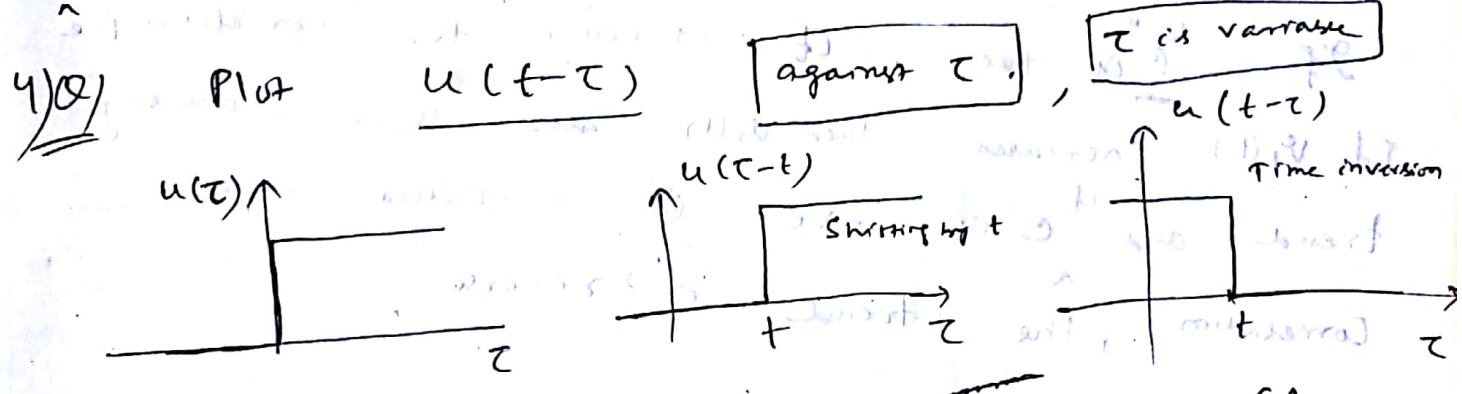 4) Q) Plot u(t-τ) against τ. , τ is variable
u(τ)
τ
u(τ-t)
Shifting by t
t
τ
u(t-τ)
Time inversion
t
τ